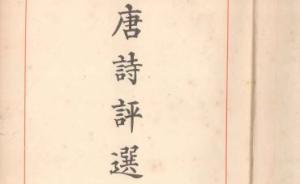 唐詩評選